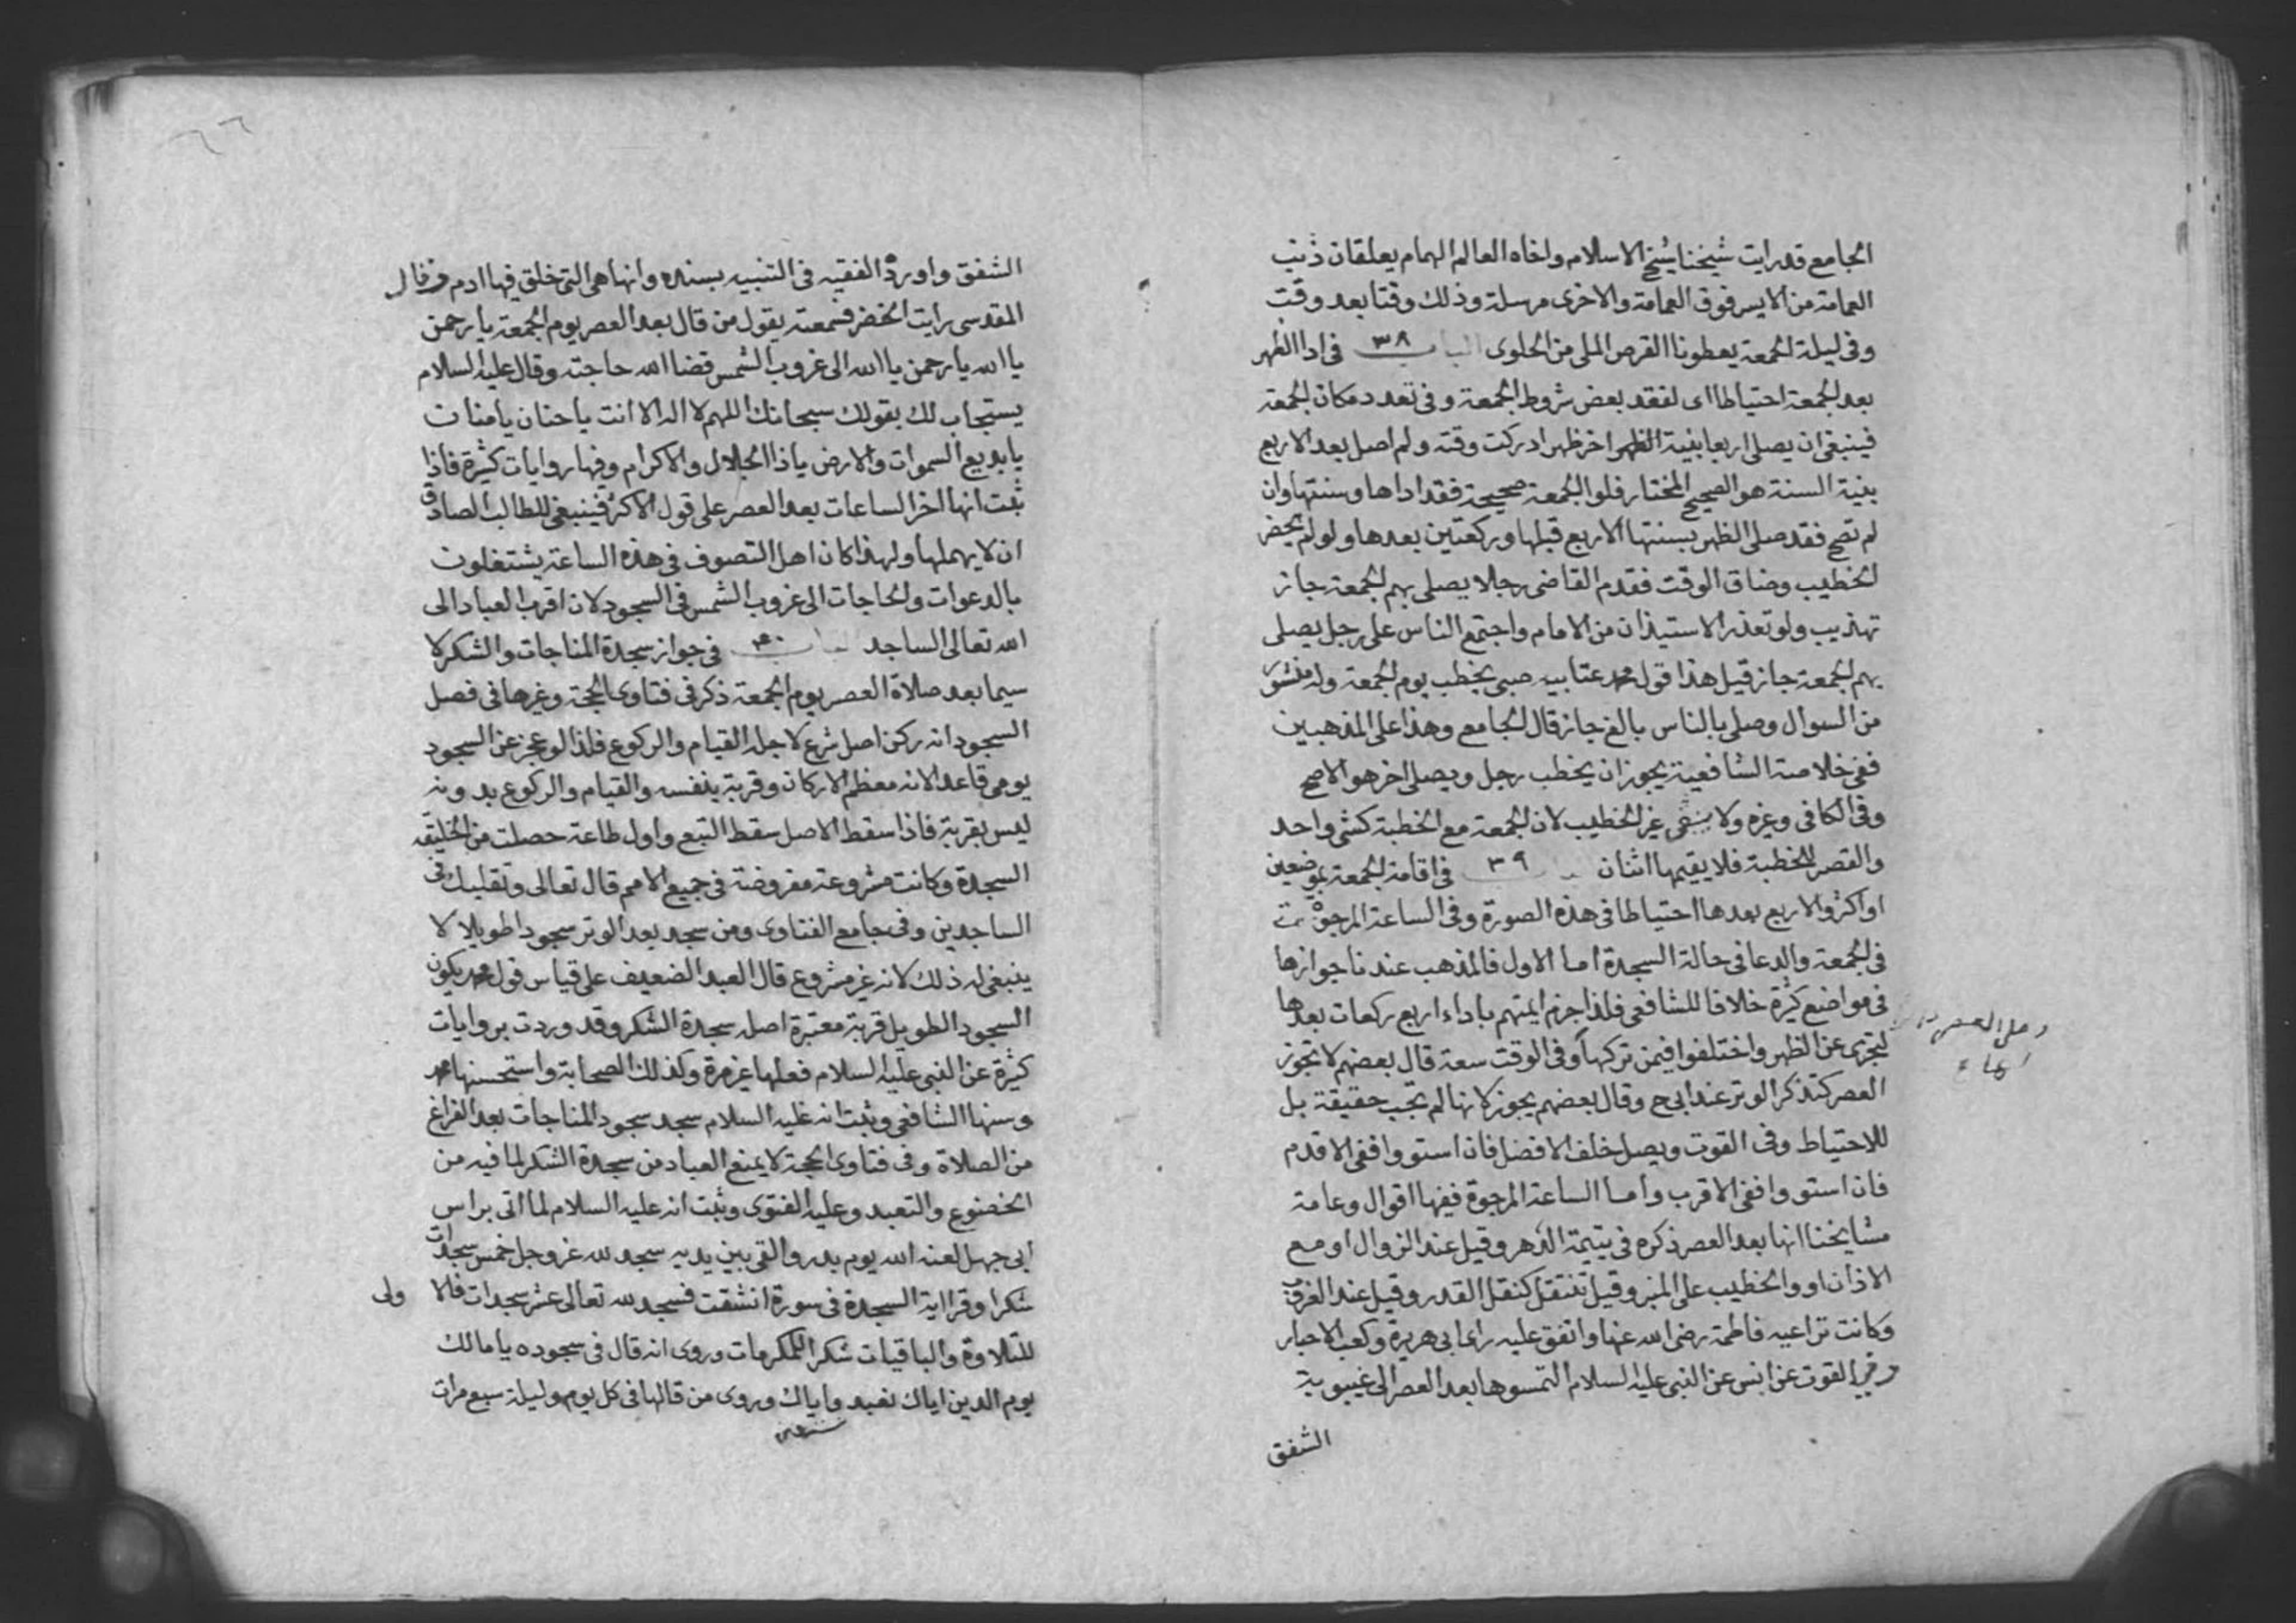 الجامع قد رايت شيخنا شيخ الاسلام واخاه العالم الهمام يعلقان ذنب
العمامة من الايسر فوق العمامة والاخرى مرسلة وذلك وقتا بعد وقت
وفى ليلة الجمعة يعطونا القرص الملى من الحلوى الباب ٣٨ فى ادا الظهر
بعد الجمعة احتياطا اى لفقد بعض شروط الجمعة وفى تعدد مكان الجمعة
فينبغى ان يصلى اربعا بنية الظهر اخر ظهر ادركت وقته ولم اصل بعد الاربع
بنية السنة هو الصحيح المختار فلو الجمعة صحيحة فقد اداها وسنتها وان
لم تصح فقد صلى الظهر بسنتها الاربع قبلها وركعتين بعدها ولو لم يحضر
الخطيب وضاق الوقت فقدم القاضى رجلا يصلى بهم الجمعة جاز
تهذيب ولو تعذر الاستيذان من الامام واجتمع الناس على رجل يصلى
بهم الجمعة جاز قيل هذا قول محمد عتابيه صبى يخطب يوم الجمعة وله منشور
من السوال وصلى بالناس بالغ جاز قال الجامع وهذا على المذهبين
ففى خلاصة الشافعية يجوز ان يخطب رجل ويصلى اخر هو الاصح
وفى الكافى وغيره ولا ينبغى غير الخطيب لان الجمعة مع الخطبة كشى واحد
والقصر للخطبة فلا يقيمها اثنان ٣٩ فى اقامة الجمعة بموضعين
او اكثر والاربع بعدها احتياطا فى هذه الصورة وفى الساعة المرجوة
فى الجمعة والدعا فى حالة السجدة اما الاول فالمذهب عندنا جوازها
فى مواضع كثيرة خلافا للشافعى فلذا جزم ايمتهم باداء اربع ركعات بعدها
ليجزى عن الظهر واختلفوا فيمن تركها وفى الوقت سعة قال بعضهم لا تجوز
العصر كتذكر الوتر عند ابى ح وقال بعضهم يجوز لانها لم تجب حقيقة بل
للاحتياط وفى القوت ويصل خلف الافضل فان استووا ففى الاقدم
فان استووا ففى الاقرب واما الساعة المرجوة ففيها اقوال وعامة
مشايخنا انها بعد العصر ذكره فى يتيمة الدهر وقيل عند الزوال او مع
الاذان او والخطيب على المنبر وقيل تنتقل كنقل القدر وقيل عند الغروب
وكانت تراعيه فاطمة رضى الله عنها واتفق عليه راى ابى هريرة وكعب الاحبار
وفى القوت عن انس عن النبى عليه السلام التمسوها بعد العصر الى غيبوبة
الشفق
الشفق واورده الفقيه فى التنبيه بسنده وانها هى التى خلق فيها ادم وقال
المقدسى رايت الخضر فسمعته يقول من قال بعد العصر يوم الجمعة يا رحمن
يا الله يا رحمن يا الله الى غروب الشمس قضا الله حاجته وقال عليه السلام
يستجاب لك بقولك سبحانك اللهم لا اله الا انت يا حنان يا منان
يا بديع السموات والارض يا ذا الجلال والاكرام وفيها روايات كثيرة فاذا
ثبت انها اخر الساعات بعد العصر على قول الاكثر فينبغى للطالب الصادق
ان لا يهملها ولهذا كان اهل التصوف فى هذه الساعة يشتغلون
بالدعوات والحاجات الى غروب الشمس فى السجود لان اقرب العباد الى
الله تعالى الساجد ٤٠ فى جواز سجدة المناجات والشكر لا
سيما بعد صلاة العصر يوم الجمعة ذكر فى فتاوى الحجة وغيرها فى فصل
السجود انه ركن اصل شرع لاجله القيام والركوع فلذا لو عجز عن السجود
يومى قاعدا لانه معظم الاركان وقربة بنفسه والقيام والركوع بدونه
ليس بقربة فاذا سقط الاصل سقط التبع واول طاعة حصلت من الخليقة
السجدة وكانت مشروعة مفروضة فى جميع الامم قال تعالى وتقلبك فى
الساجدين وفى جامع الفتاوى ومن سجد بعد الوتر سجودا طويلا لا
ينبغى له ذلك لانه غير مشروع قال العبد الضعيف على قياس قول محمد يكون
السجود الطويل قربة معتبرة اصله سجدة الشكر وقد وردت بروايات
كثيرة عن النبى عليه السلام فعلها غير مرة وكذلك الصحابة واستحسنها محمد
وسنها الشافعى وثبت انه عليه السلام سجد سجود المناجات بعد الفراغ
من الصلاة وفى فتاوى الحجة لا يمنع العباد من سجدة الشكر لما فيه من
الخضوع والتعبد وعليه الفتوى وثبت انه عليه السلام لما اتى براس
ابى جهل لعنه الله يوم بدر والقى بين يديه سجد لله عز وجل خمس سجدات
شكرا وقرا اية السجدة فى سورة انشقت فسجد لله تعالى عشر سجدات فالاولى
للتلاوة والباقيات شكرا للمكرمات وروى انه قال فى سجوده يا مالك
يوم الدين اياك نعبد واياك وروى من قالها فى كل يوم وليلة سبع مرات
نستعين